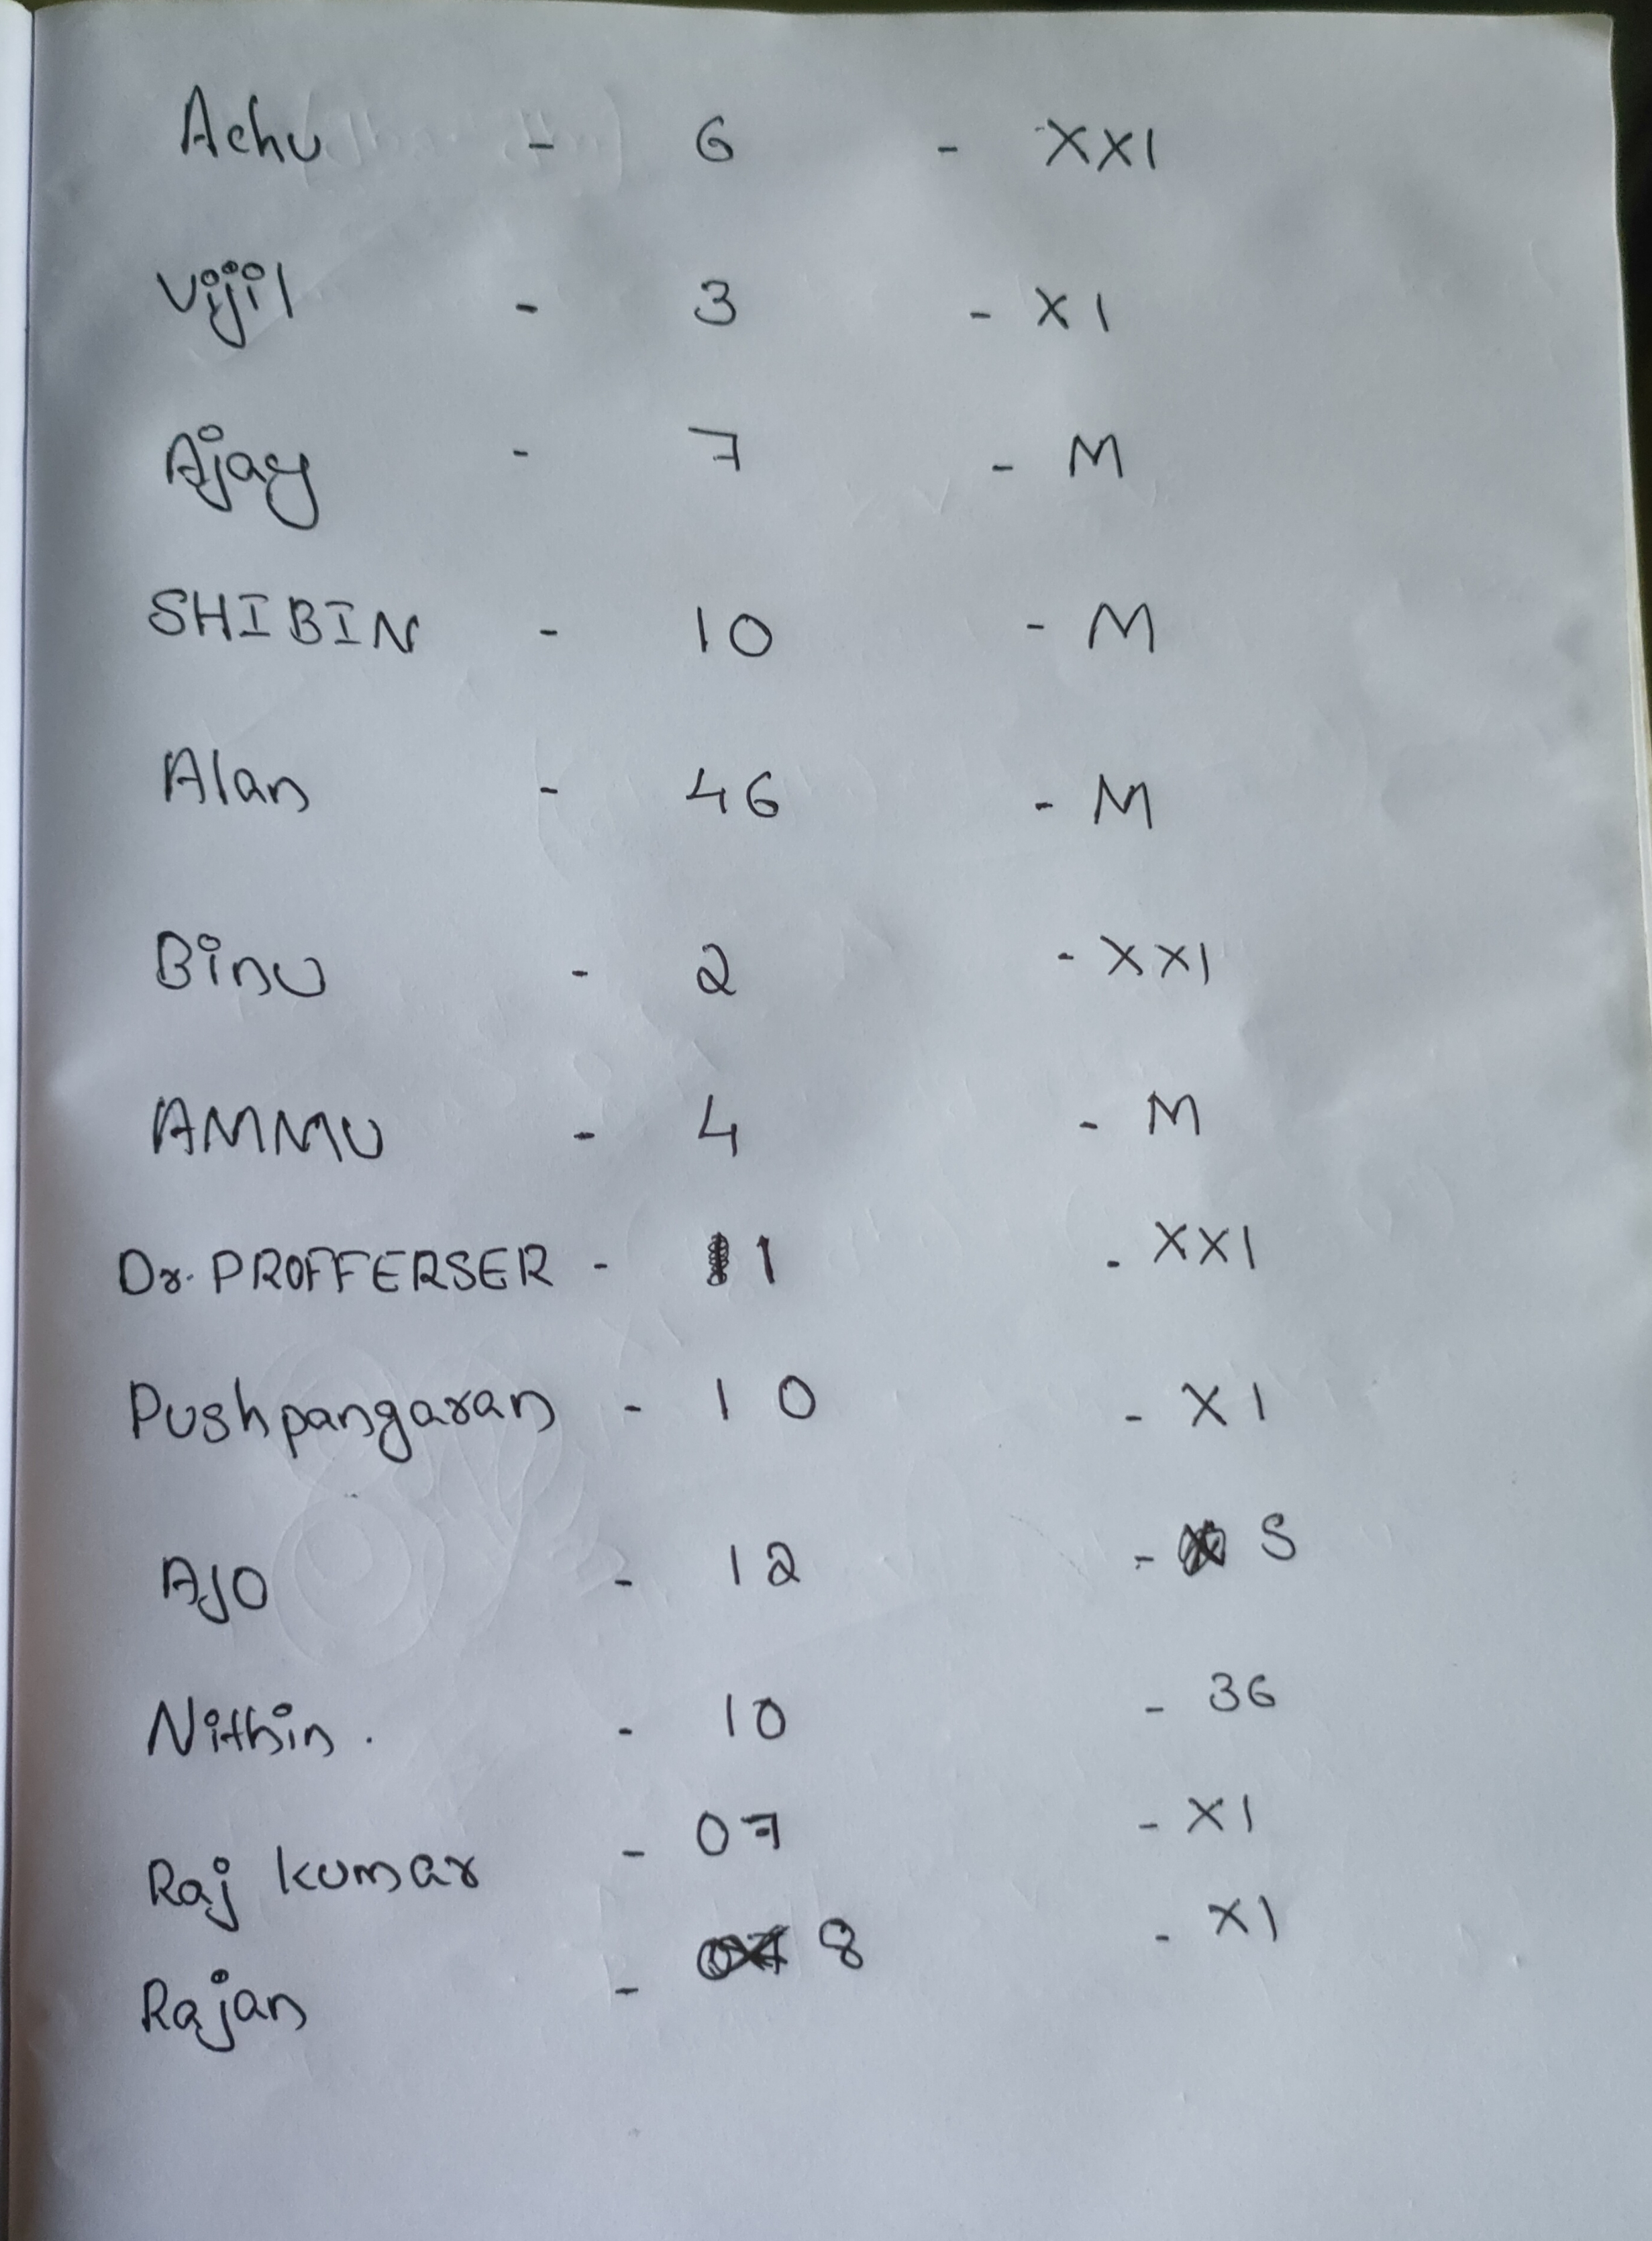 Achu - 6 - XXI
Vijil - 3 - XI
Ajay - 7 - M
SHIBIN - 10 - M
Alan - 46 - M
Binu - 2 - XXI
AMMU - 4 - M
Dr. PROFFERSER - 1 - XXI
Pushpangaran - 10 - XI
AJO - 12 - S
Nithin. - 10 - 36
Raj kumar - 07 - XI
Rajan - 8 - XI